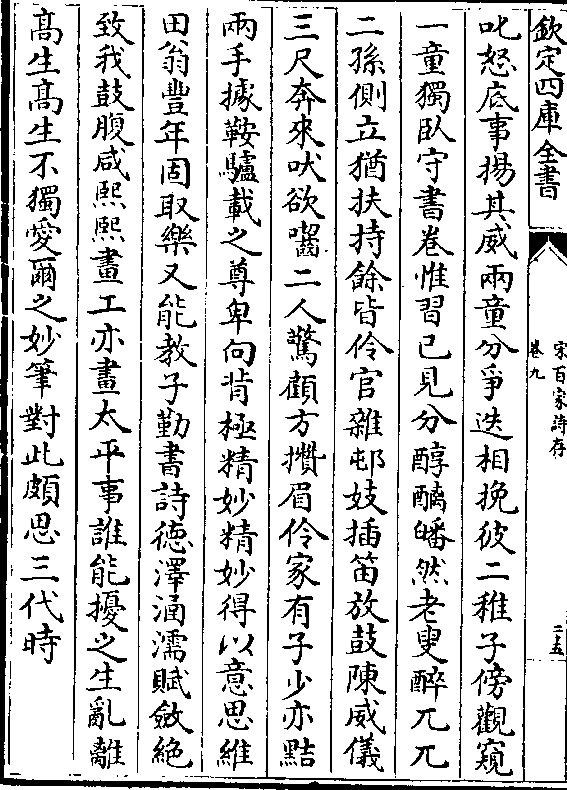 欽定四庫全書
宋百家詩存
卷九
二五
叱怒底事揚其威兩童分爭迭相挽彼二稚子傍觀窺
一童獨臥守書卷惟習已見分醇醨皤然老叟醉兀兀
二孫側立猶扶持餘皆伶官雜邨妓插笛放鼓陳威儀
三尺奔來吠欲囓二人驚顧方攢眉伶家有子少亦黠
兩手據鞍驢載之尊卑向背極精妙精妙得以意思維
田翁豐年固取樂又能教子勤書詩德澤涵濡賦斂絶
致我鼓腹咸熙熙畫工亦畫太平事誰能擾之生亂離
髙生髙生不獨愛爾之妙筆對此頗思三代時